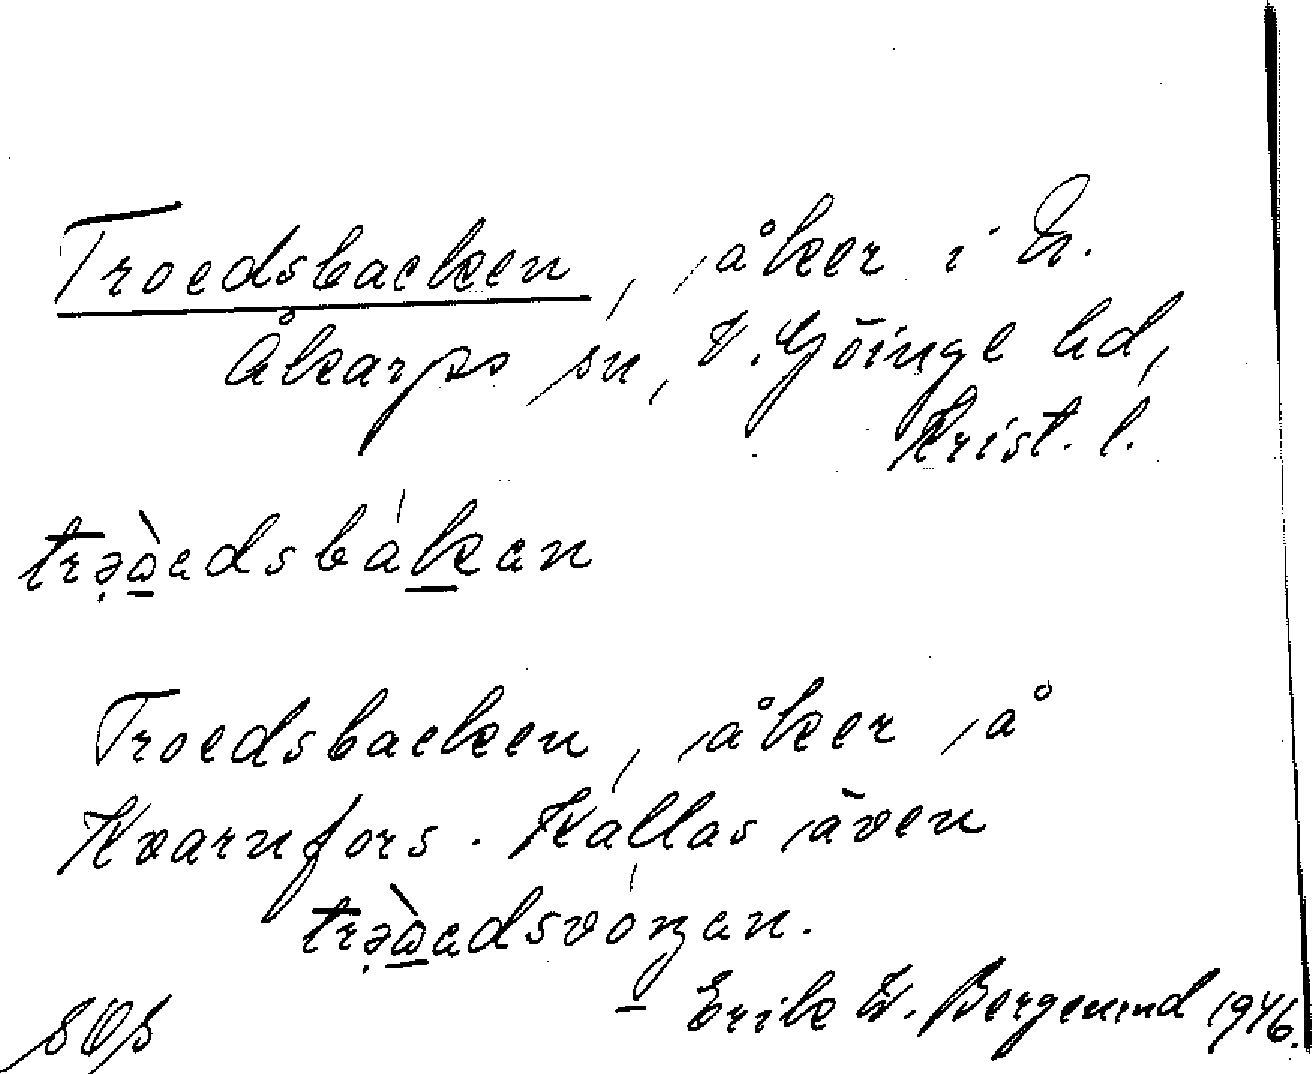 Troedsbacken, åker i N.
Åkarps sn, V. Göinge hd,
Krist. l.
trə̣ὼ̲adsbák̲an
Troedsbacken, åker å
Kvarnfors. Kallas även
trə̣ὼ̲adsvóŋ̲an.
Erik W. Bergerund 1946.